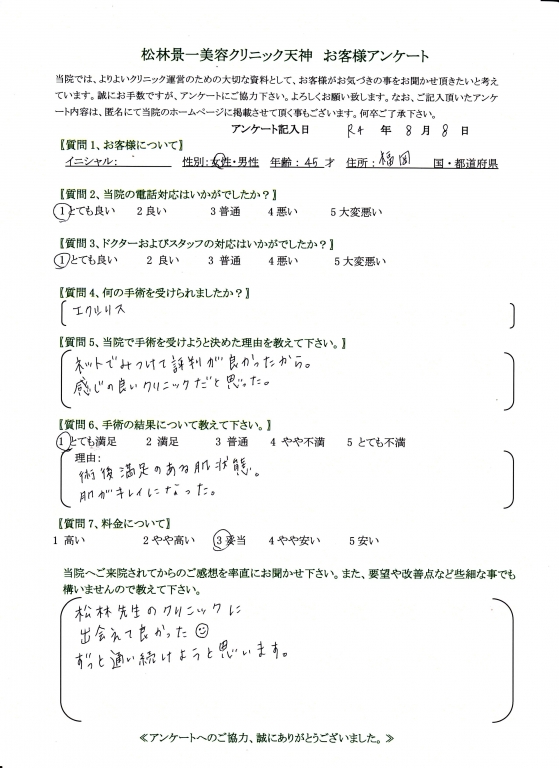 松林景一美容クリニック天神 お客様アンケート
当院では、よりよいクリニック運営のための大切な資料として、お客様がお気づきの事をお聞かせ頂きたいと考え
ています。誠にお手数ですが、アンケートにご協力下さい。よろしくお願い致します。なお、ご記入頂いたアンケ
ート内容は、匿名にて当院のホームページに掲載させて頂く事もございます。何卒ご了承下さい。
アンケート記入日 R4 年 8 月 8 日
〖質問1、お客様について〗
イニシャル: 性別:女性・男性 年齢:45才 住所:福岡 国・都道府県
〖質問2、当院の電話対応はいかがでしたか?〗
1とても良い 2良い 3普通 4悪い 5大変悪い
〖質問3、ドクターおよびスタッフの対応はいかがでしたか?〗
1とても良い 2 良い 3 普通 4悪い 5大変悪い
〖質問4、何の手術を受けられましたか?〗
エクリリス
〖質問5、当院で手術を受けようと決めた理由を教えて下さい。〗
ネットでみつけて評判が良かったから。
感じの良いクリニックだと思った。
〖質問6、手術の結果について教えて下さい。〗
1とても満足 2 満足 3 普通 4 やや不満 5 とても不満
理由:
術後満足のある肌状態。
肌がキレイになった。
〖質問7、料金について〗
1 高い 2やや高い 3妥当 4やや安い 5安い
当院へご来院されてからのご感想を率直にお聞かせ下さい。また、要望や改善点など些細な事でも
構いませんので教えて下さい。
松林先生のクリニックに
出会えて良かった☺
ずっと通い続けようと思います。
≪アンケートへのご協力、誠にありがとうございました。≫